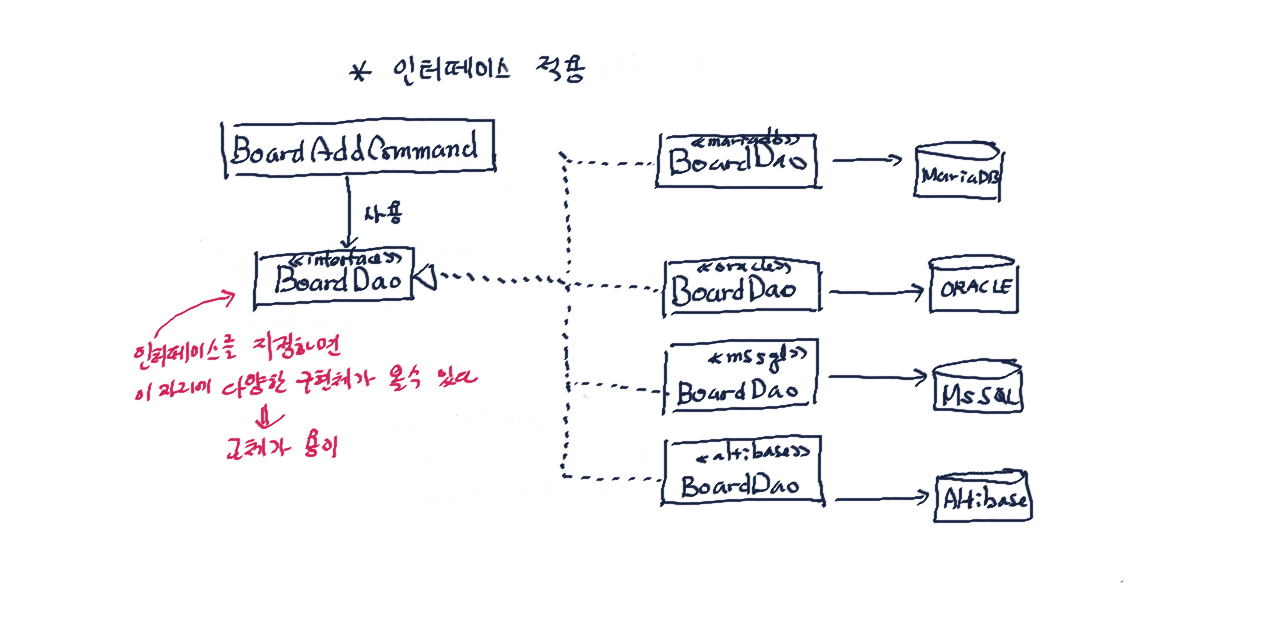 * 인터페이스 적용
BoardAddCommand
사용
«interface»
BoardDao
인터페이스를 지정하면
이 자리에 다양한 구현체가 올수 있다
교체가 용이
«mariadb»
BoardDao
MariaDB
«oracle»
BoardDao
ORACLE
«mssql»
BoardDao
MsSQL
«altibase»
BoardDao
Altibase